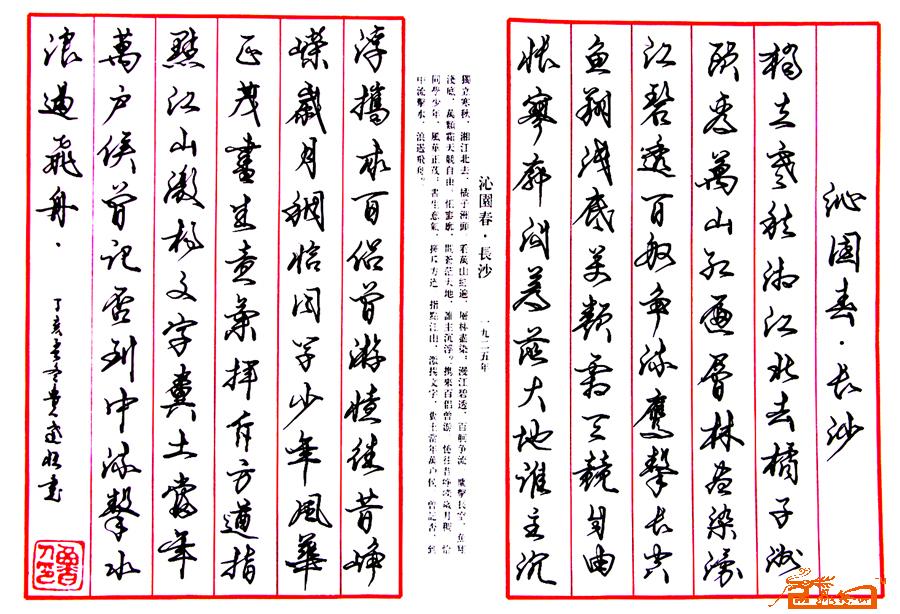 沁園春·长沙
獨立寒秋湘江北去橘子洲
頭看萬山红遍層林盡染漫
江碧透百舸争流鷹擊长空
鱼翔浅底万類霜天競自由
悵寥廓问蒼茫大地谁主沉
沁園春·長沙 一九二五年
獨立寒秋，湘江北去，橘子洲頭。看萬山紅遍，層林盡染；漫江碧透，百舸争流。鷹擊長空，魚翔
淺底，萬類霜天競自由。悵寥廓，問蒼茫大地，誰主沉浮？携來百侣曾游，憶往昔崢嶸歲月稠。恰
同學少年，風華正茂；書生意氣，揮斥方遒。指點江山，激揚文字，糞土當年萬户侯。曾記否，到
中流擊水，浪遏飛舟。
浮攜來百侣曾游憶往昔峥
嵘歲月稠恰同学少年風華
正茂書生意氣揮斥方遒指
點江山激扬文字糞土當年
萬户侯曾记否到中流擊水
浪遏飛舟.
丁亥年冬